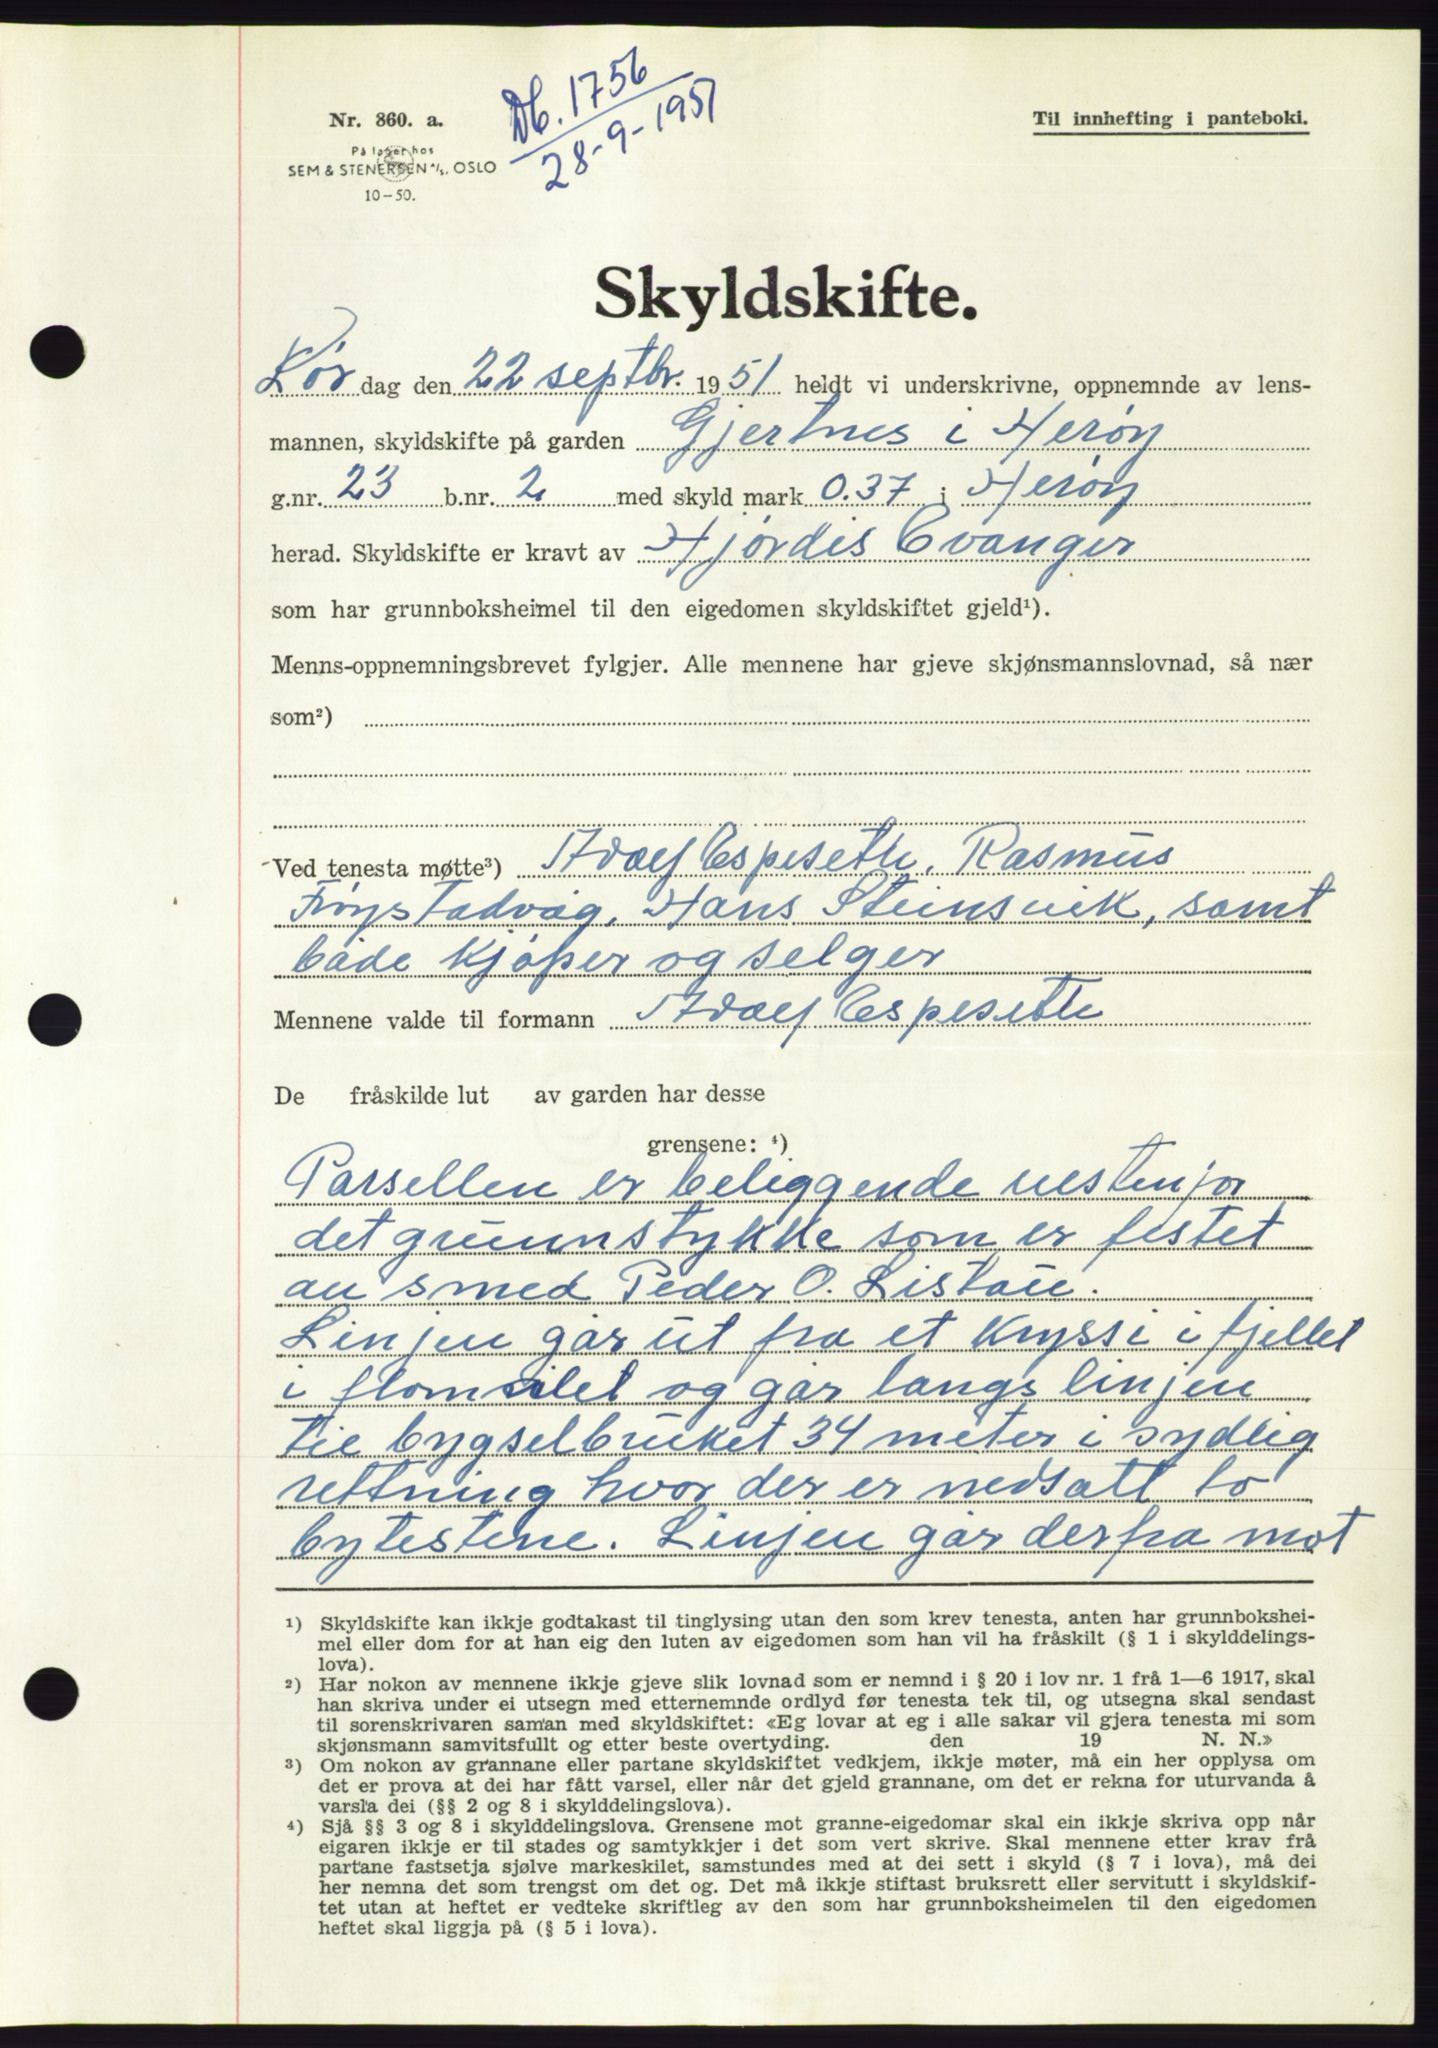 Db. 1756
28-9-1951
Nr. 860. a.
På lager hos
SEM & STENERSEN A/S, OSLO
10-50.
Til innhefting i panteboki.
Skyldskifte.
Lør dag den 22 septbr. 1951 heldt vi underskrivne, oppnemnde av lens-
mannen, skyldskifte på garden Gjertnes i Herøy
g.nr. 23 b.nr. 2 med skyld mark 0.37 i Herøy
herad. Skyldskifte er kravt av Hjørdis Evanger
som har grunnboksheimel til den eigedomen skyldskiftet gjeld¹).
Menns-oppnemningsbrevet fylgjer. Alle mennene har gjeve skjønsmannslovnad, så nær
som²)
Ved tenesta møtte³) Adolf Espeseth, Rasmus
Frøystadvåg, Hans Steinsvik, samt
både kjøper og selger
Mennene valde til formann Adolf Espeseth
De fråskilde lut av garden har desse
grensene: ⁴)
Parsellen er beliggende vestenfor
det grunnstykke som er festet
av smed Peder O. Listau.
Linjen går ut fra et kryss i fjellet
i flomålet og går langs linjen
til bygselbruket 34 meter i sydlig
rettning hvor der er nedsatt to
bytestene. Linjen går derfra mot
¹) Skyldskifte kan ikkje godtakast til tinglysing utan den som krev tenesta, anten har grunnbokshei-
mel eller dom for at han eig den luten av eigedomen som han vil ha fråskilt (§ 1 i skylddelings-
lova).
²) Har nokon av mennene ikkje gjeve slik lovnad som er nemnd i § 20 i lov nr. 1 frå 1—6 1917, skal
han skriva under ei utsegn med etternemnde ordlyd før tenesta tek til, og utsegna skal sendast
til sorenskrivaren saman med skyldskiftet: «Eg lovar at eg i alle sakar vil gjera tenesta mi som
skjønsmann samvitsfullt og etter beste overtyding. den 19 N. N.»
³) Om nokon av grannane eller partane skyldskiftet vedkjem, ikkje møter, må ein her opplysa om
det er prova at dei har fått varsel, eller når det gjeld grannane, om det er rekna for uturvanda å
varsla dei (§§ 2 og 8 i skylddelingslova).
⁴) Sjå §§ 3 og 8 i skylddelingslova. Grensene mot granne-eigedomar skal ein ikkje skriva opp når
eigaren ikkje er til stades og samtykkjer i det som vert skrive. Skal mennene etter krav frå
partane fastsetja sjølve markeskilet, samstundes med at dei sett i skyld (§ 7 i lova), må dei
her nemna det som trengst om det og. Det må ikkje stiftast bruksrett eller servitutt i skyldskif-
tet utan at heftet er vedteke skriftleg av den som har grunnboksheimelen til den eigedomen
heftet skal liggja på (§ 5 i lova).